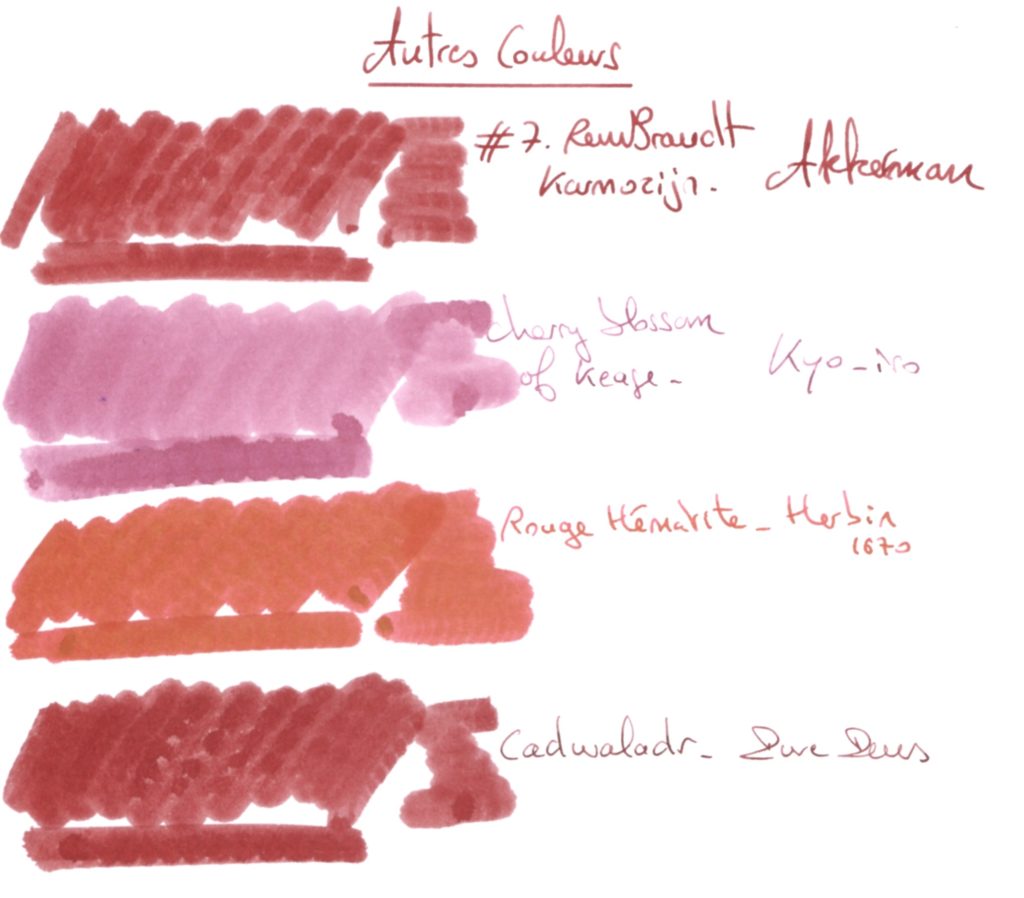 Autres Couleurs
#7. RemBrandt Akkerman
Karmozijn.
Cherry blossom
of Keage - Kyo-iro
Rouge Hématite - Herbin
1670
Cadwaladr - Pure Pens